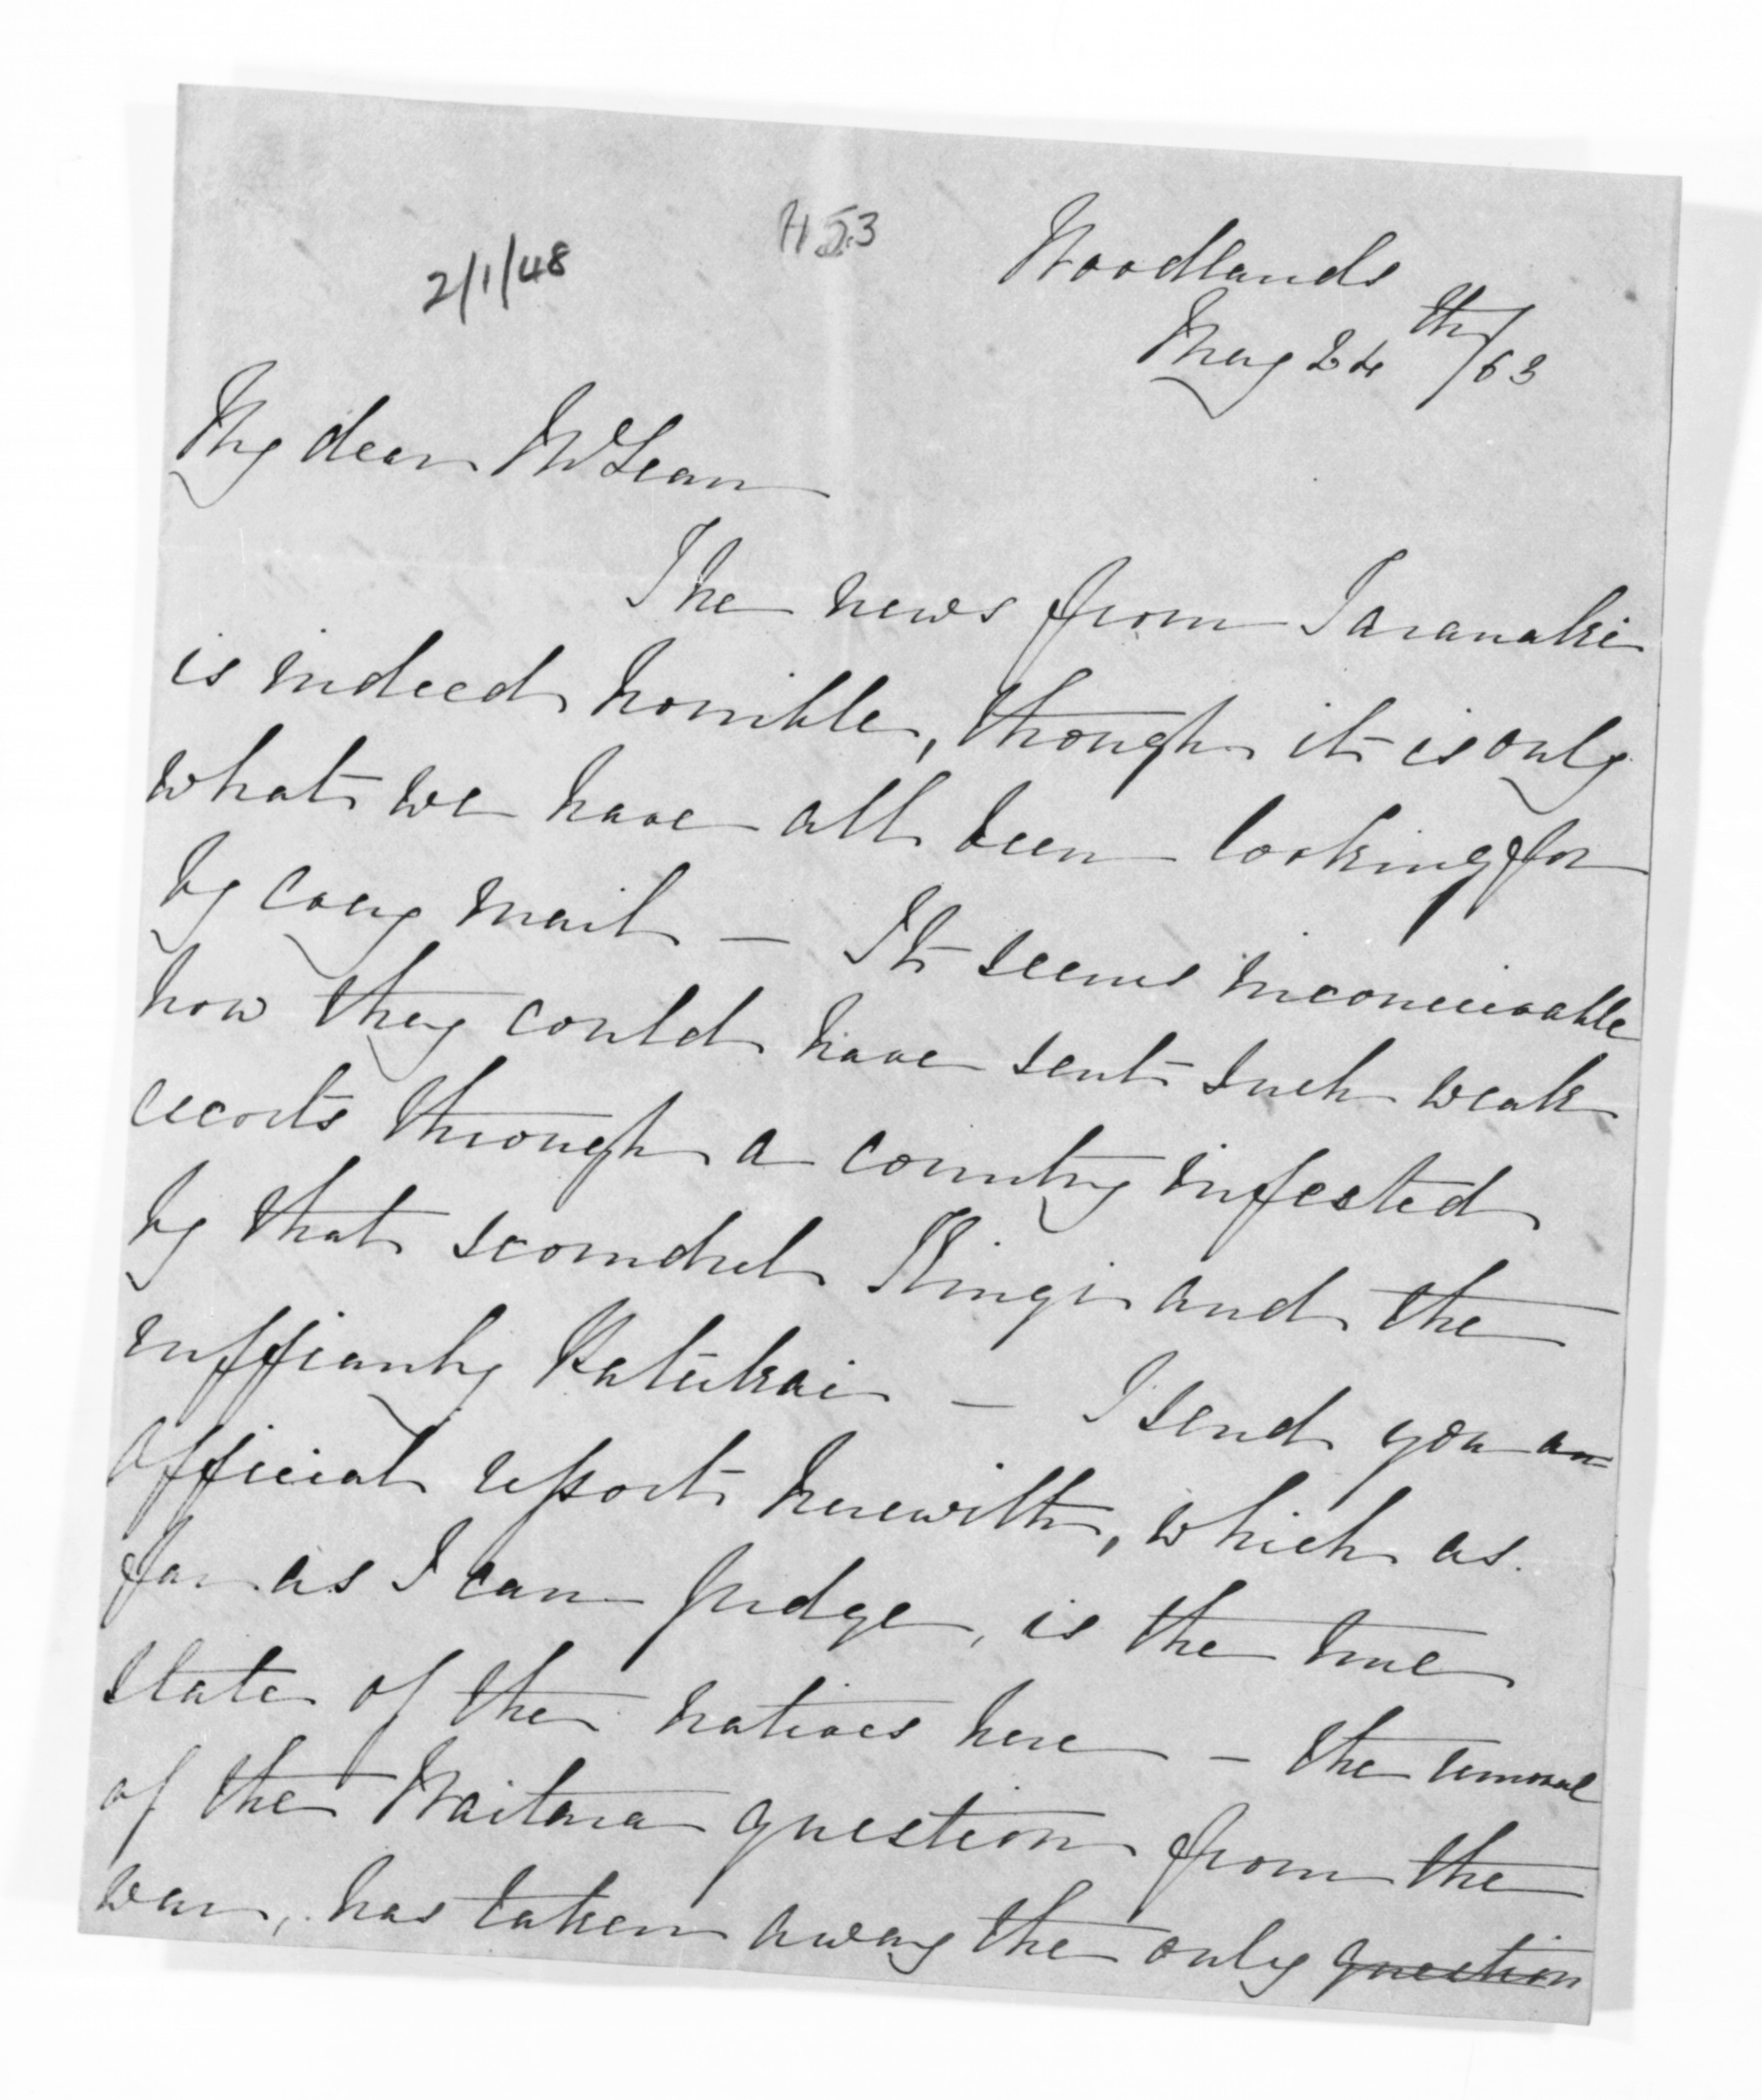 2/1/48
H53
Woodlands
May 24th/63
My dear McLean
The news from Taranaki
is indeed horrible, though it is only
what we have all been looking for
by every mail — It seems inconceivable
how they could have sent such weak
escorts through a country infested
by that scoundrel Kingi and the
ruffianly Hatukai — I send you an
official report herewith, which as
far as I can judge, is the true
state of the natives here — the removal
of the Waitara question from the
war, has taken away the only question